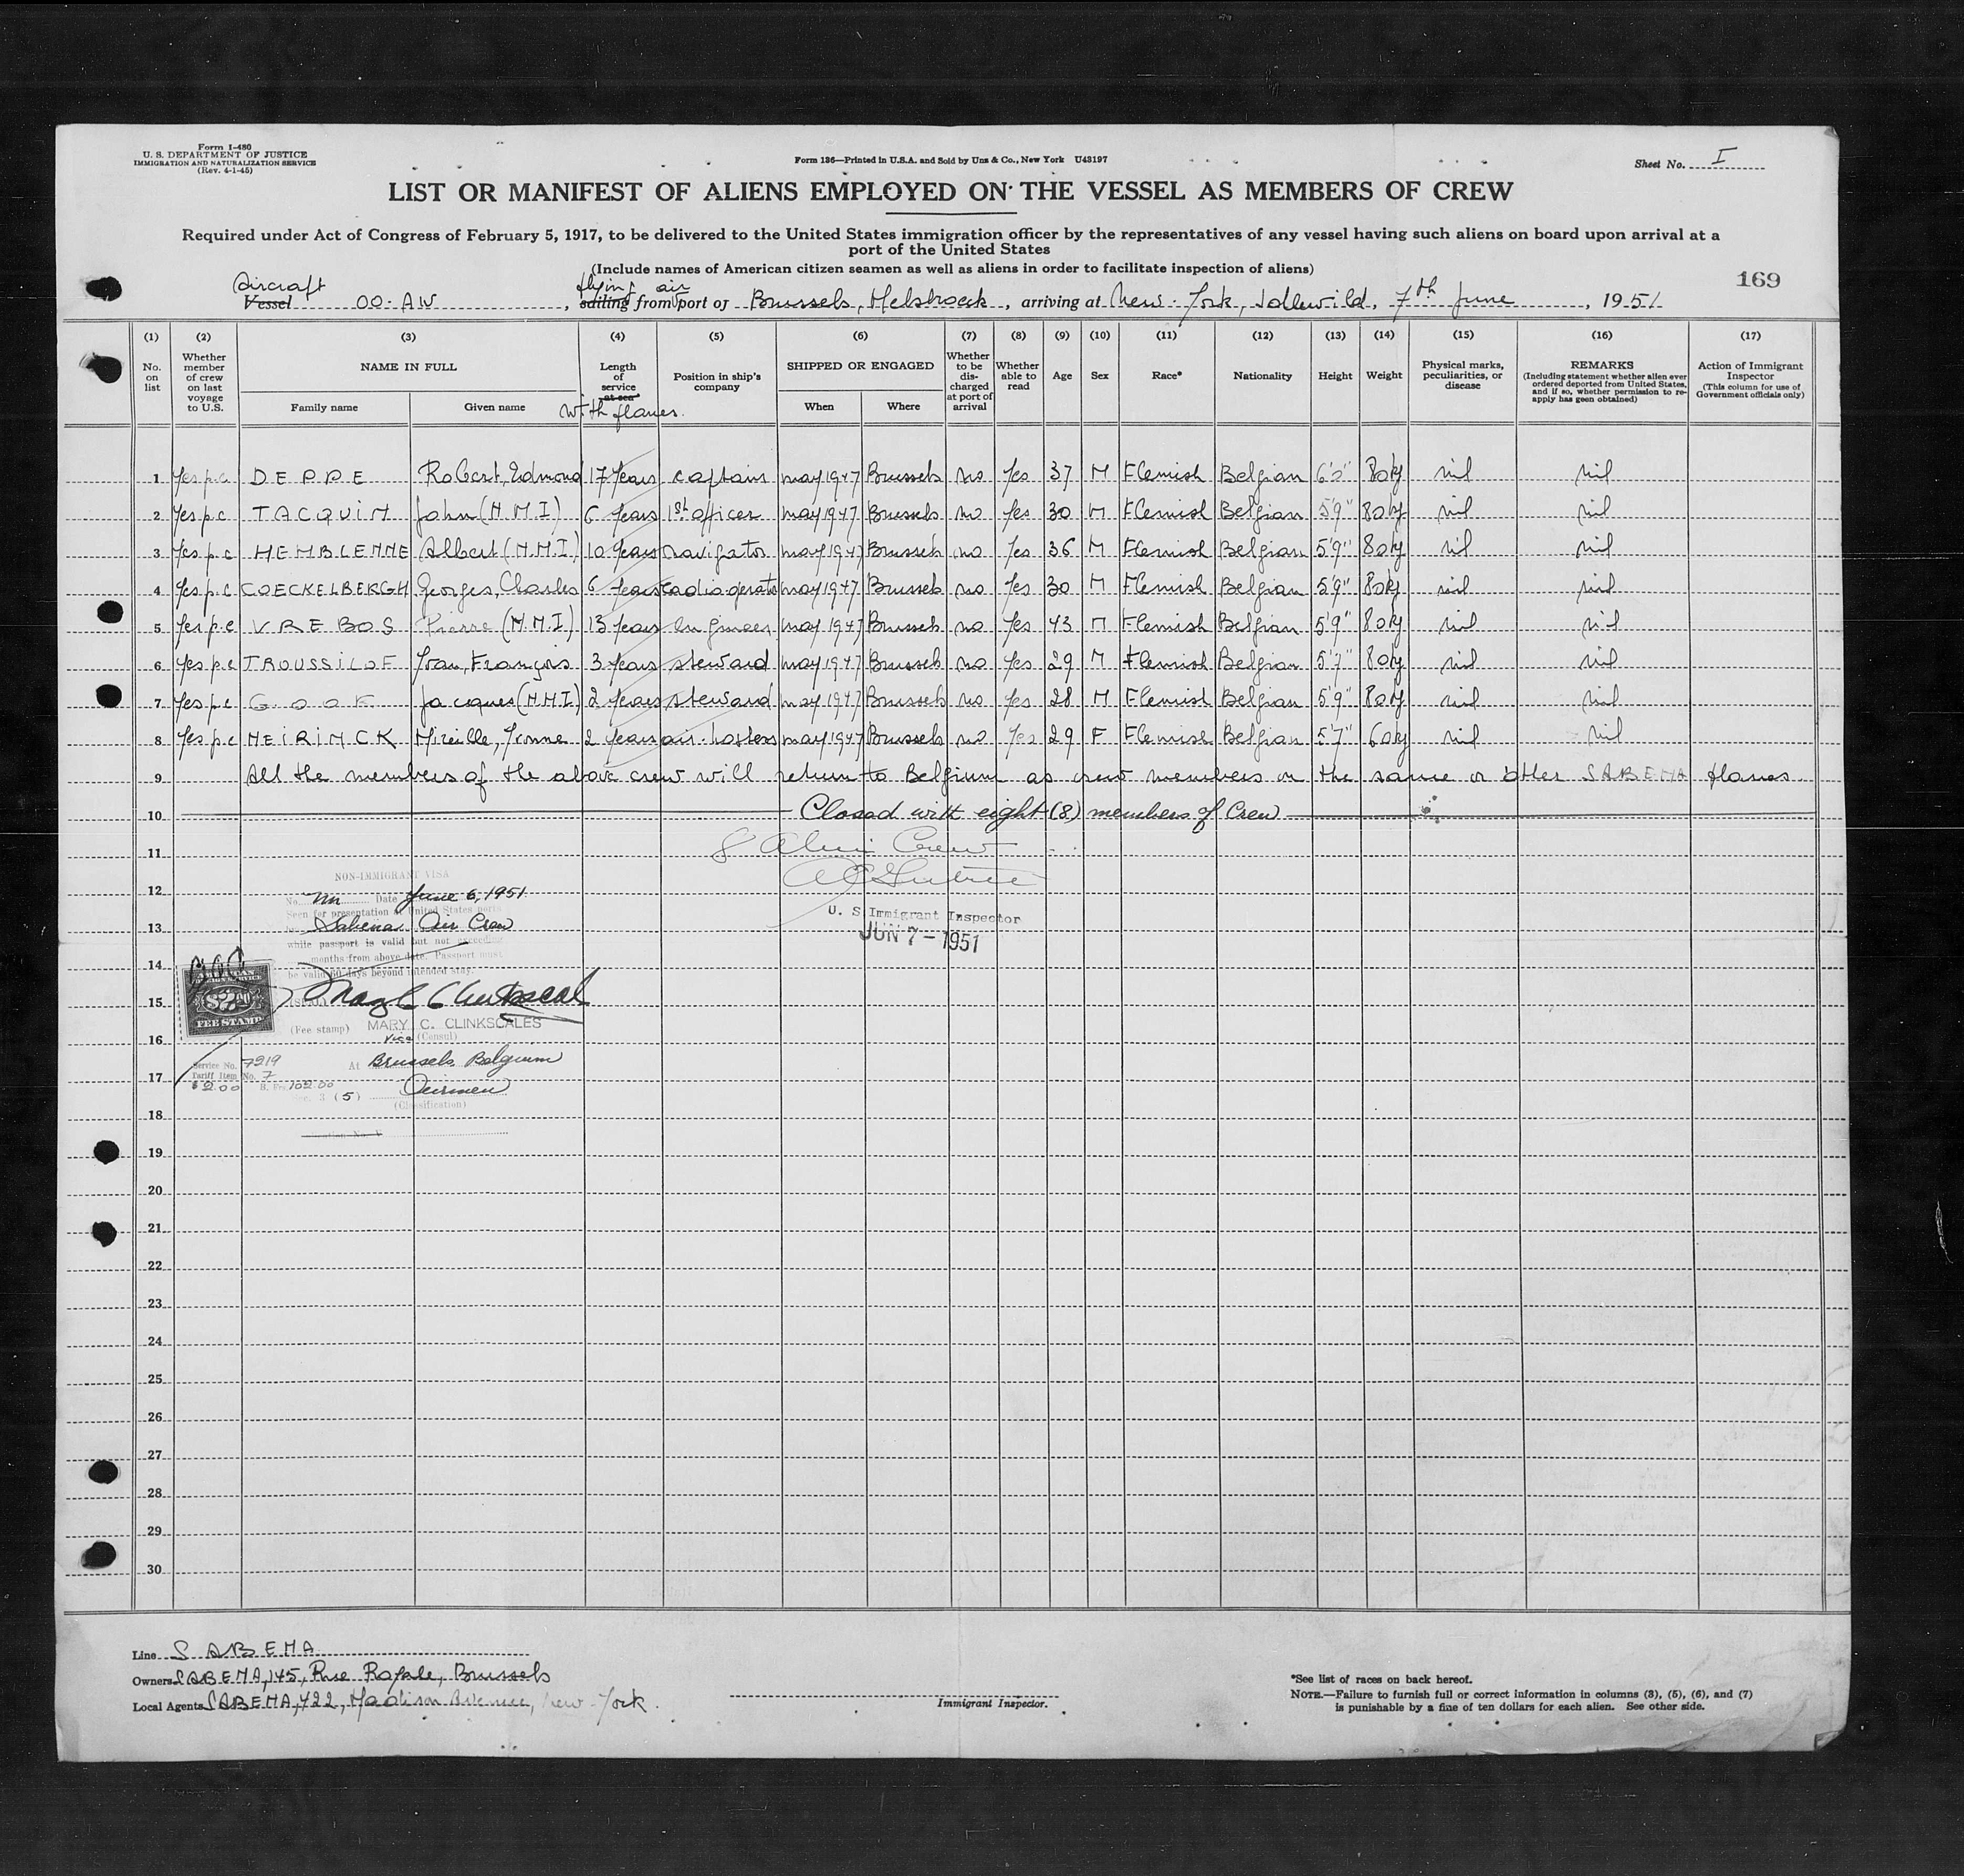 Form I-480
U. S. DEPARTMENT OF JUSTICE
IMMIGRATION AND NATURALIZATION SERVICE
(Rev. 4-1-45)
Form 136—Printed in U.S.A. and Sold by Unz & Co., New York U43197
Sheet No. I
LIST OR MANIFEST OF ALIENS EMPLOYED ON THE VESSEL AS MEMBERS OF CREW
Required under Act of Congress of February 5, 1917, to be delivered to the United States immigration officer by the representatives of any vessel having such aliens on board upon arrival at a
port of the United States
(Include names of American citizen seamen as well as aliens in order to facilitate inspection of aliens)
169
Aircraft flying air
Vessel OO-AW, sailing from port of Brussels, Melsbroeck, arriving at New-York, Idlewild, 7th June, 1951
(1) (2) (3) (4) (5) (6) (7) (8) (9) (10) (11) (12) (13) (14) (15) (16) (17)
No. on list
Whether member of crew on last voyage to U.S.
NAME IN FULL
Family name Given name
Length of service at sea
with planes.
Position in ship's company
SHIPPED OR ENGAGED
When Where
Whether to be discharged at port of arrival
Whether able to read
Age
Sex
Race*
Nationality
Height
Weight
Physical marks, peculiarities, or disease
REMARKS
(Including statement whether alien ever ordered deported from United States, and if so, whether permission to reapply has geen obtained)
Action of Immigrant Inspector
(This column for use of Government officials only)
1 Yes p.c DEPPE Robert, Edmond 17 Years captain may 1947 Brussels no Yes 37 M Flemish Belgian 6'0" 80kg nil nil
2 Yes p.c TACQUIN John (N.M.I) 6 Years 1st officer may 1947 Brussels no Yes 30 M Flemish Belgian 5'9" 80kg nil nil
3 Yes p.c HEMBLENNE Albert (N.M.I) 10 Years navigator may 1947 Brussels no Yes 36 M Flemish Belgian 5'9" 80kg nil nil
4 Yes p.c COECKELBERGH Georges, Charles 6 Years radio operator may 1947 Brussels no Yes 30 M Flemish Belgian 5'9" 80kg nil nil
5 Yes p.c VREBOS Pierre (N.M.I) 13 Years Engineer may 1947 Brussels no Yes 43 M Flemish Belgian 5'9" 80kg nil nil
6 Yes p.c TROUSSILOF Ivan, François 3 Years steward may 1947 Brussels no Yes 29 M Flemish Belgian 5'7" 80kg nil nil
7 Yes p.c Jacques (N.M.I) 2 Years steward may 1947 Brussels no Yes 28 M Flemish Belgian 5'9" 80kg nil nil
8 Yes p.c NEIRINCK Mireille, Yvonne 2 Years air-hostess may 1947 Brussels no Yes 29 F Flemish Belgian 5'7" 60kg nil nil
9 All the members of the above crew will return to Belgium as crew members on the same or other SABENA planes.
10 Closed with eight (8) members of Crew
11 8 Alien Crew
12
13
14
15
16
17
18
19
20
21
22
23
24
25
26
27
28
29
30
U. S. Immigrant Inspector
JUN 7 - 1951
NON-IMMIGRANT VISA
No. Date June 6, 1951
Seen for presentation at United States ports
Sabena Air Crew
while passport is valid but not exceeding
months from above date. Passport must
be valid 60 days beyond intended stay.
$2.00
FEE STAMP
(Fee stamp) MARY C. CLINKSCALES
Vice (Consul)
Service No. 7219 At Brussels, Belgium
Tariff Item No. 7
$2.00 B. Frs 102.00 Airmen
Sec. 3 (5)
(Classification)
Line SABENA
Owners SABENA, 145, Rue Royale, Brussels
Local Agents SABENA, 422, Madison Avenue, New-York.
Immigrant Inspector.
*See list of races on back hereof.
NOTE.—Failure to furnish full or correct information in columns (3), (5), (6), and (7)
is punishable by a fine of ten dollars for each alien. See other side.